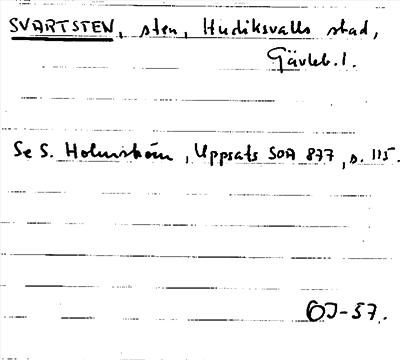 SVARTSTEN, sten, Hudiksvalls stad,
Gävleb. l.
Se S. Holmström, Uppsats SOA 877, s. 115.
OJ-57.